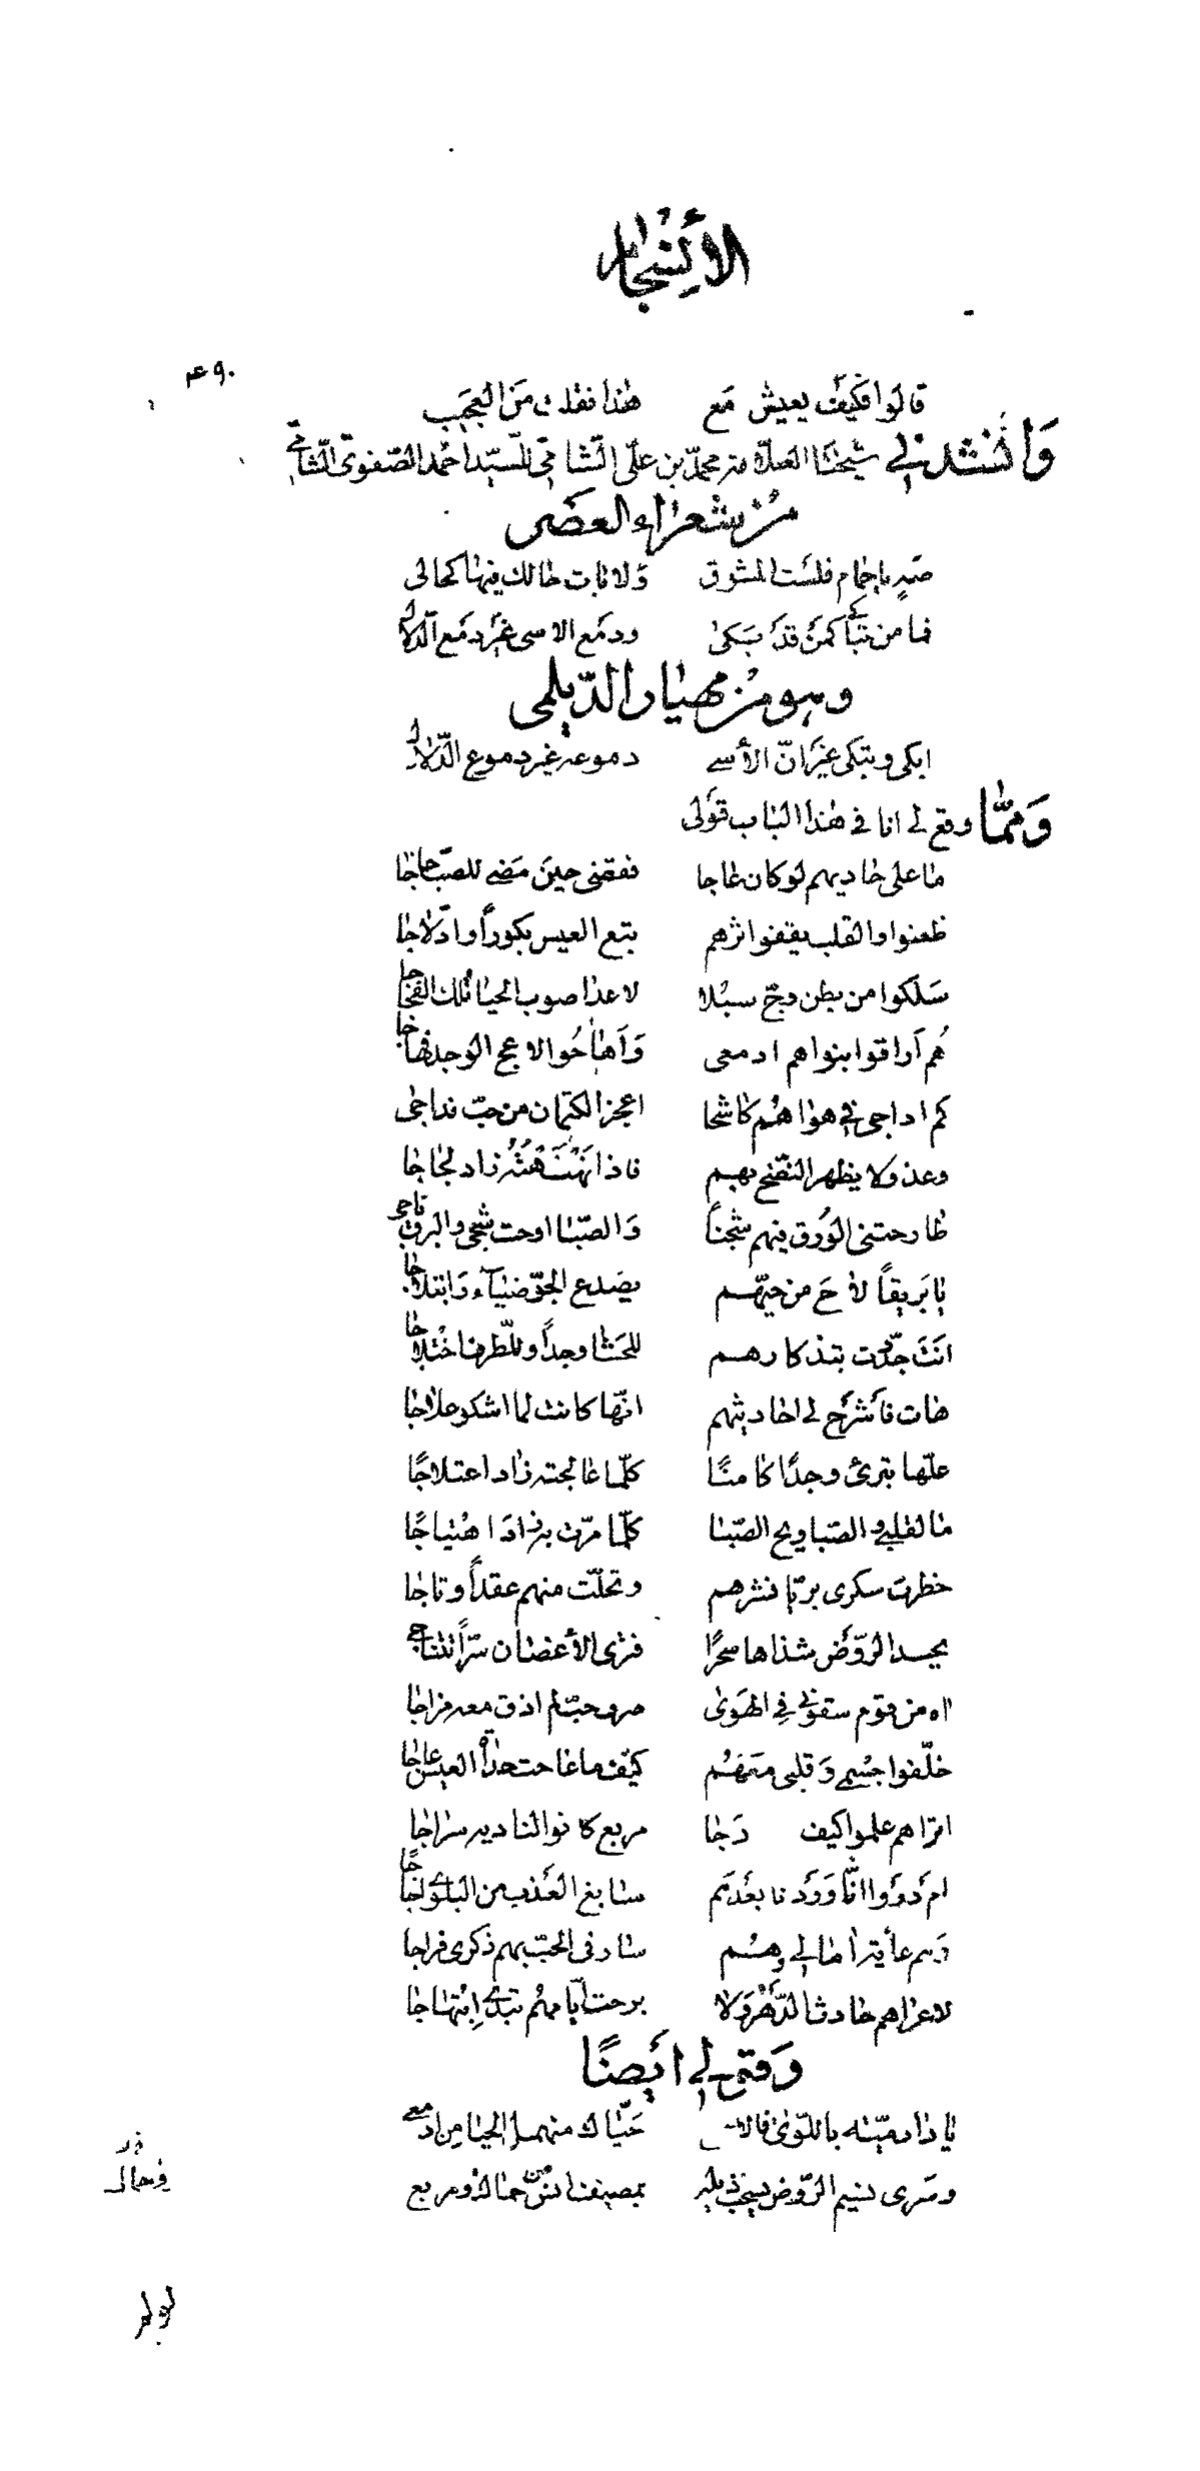 الأنسجام
٤٩٠
قالوا فكيف يعيش مع هذا فقلت من العجب
وَانشدني شيخنا العلامة محمد بن علي الشامي للسيد احمد الصفوي الشامي
من شعراء العصر
صه يا حمام فلست المشوق ولا بات حالك فيها كحالى
فما من تباكى كمن قد بكى ودمع الاسى غير دمع الدلال
وهو من مهيار الديلمى
ابكى وتبكى غير انّ الأسى دموعه غير دموع الدّلال
وَممّا وقع لى انا فى هذا الباب قولى
ما على حاديهم لو كان عاجا فقضى حين مضى للصّب حاجا
ظعنوا والقلب يقفو اثرهم يتبع العيس بكوراً وادّلاجا
سلكوا من بطن وجّ سبلا لا عدا صوب الحيا تلك الفجاجا
هُم اراقوا بنواهم ادمعى وَاهاجوا لاعج الوجد فهاجا
كم اداجى فى هواهم كاشحا اعجز الكتمان من حبّ فداجى
وعذولا يظهر النّصح بهم فاذا نَهْنَهْتُه زاد لجاجا
طارحتنى الوُرق فيهم شجناً وَالصّبا اوحت شجى والبرق ناجى
يا بَريقاً لاحَ من حيّهم يصدع الجوّ ضياء وَابتلاجا
انتَ جدّدت بتذكارهم للحشا وجداً وللطّرف اختلاجا
هات فأشرح لى احاديثهم انّها كانت لما اشكو علاجا
علّها تبرئ وجدًا كامنًا كلّما عالجته زاد اعتلاجًا
ما لقلبى والصّبا ويح الصّبا كلّما مرّت به زادَ اهتياجًا
خطرت سكرى بريّا نشرهم وتحلّت منهم عقداً وتاجا
يحسد الروّض شذاها سحرًا فترى الأغصان سرّاً تتناجى
اه من قوم سقونى فِى الهَوىٰ صرف حبّ لم اذق معه مزاجا
خلّفوا جسمى وَقلبى معهُم كيف ما عاجت حداة العيس عاجا
اتراهم علموا كيف دَجا مربع كانوا لناديه سراجا
ام دَرَوا انّا وَرَدنا بعدهم سابغ العذب من البلوى اجاجًا
لا عراهم حادث الدّهْر وَلا برحت ايّامهم تبدى اِبتهاجا
وَقع لى ايضًا
يا دار ميّة باللّوىٰ فالاجرع حيّاك منهمل الحيا مِن ادمعى
وسَرى نسيم الرّوض يسحب ذيله بمصيف انس من حماك ومربع